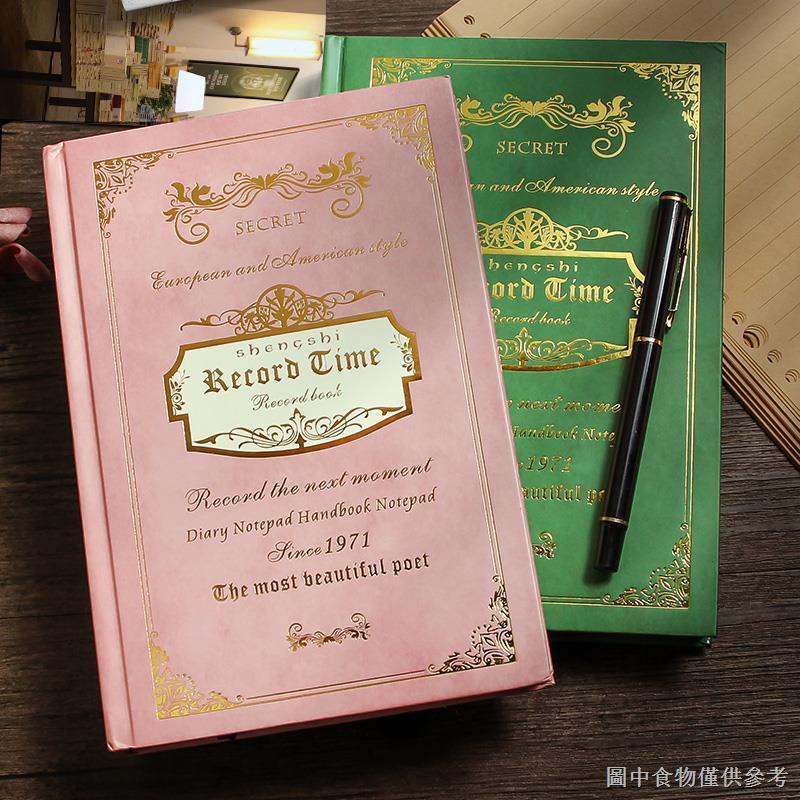 SECRET
European and American style
shengshi
Record Time
Record book
Record the next moment
Diary Notepad Handbook Notepad
Since 1971
The most beautiful poet
SECRET
and American style
shengshi
ord Time
Record book
next mome
Handbook Notep
1971
autiful po
圖中食物僅供參考